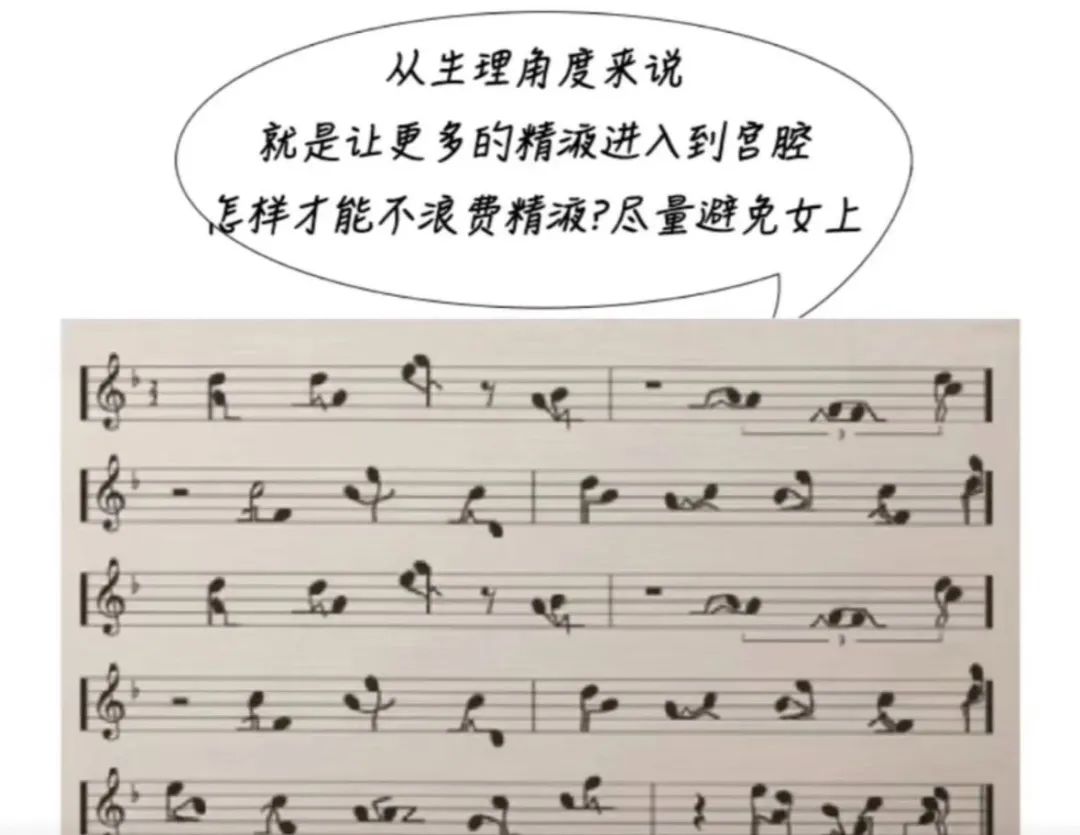 从生理角度来说
就是让更多的精液进入到宫腔
怎样才能不浪费精液?尽量避免女上
3
3